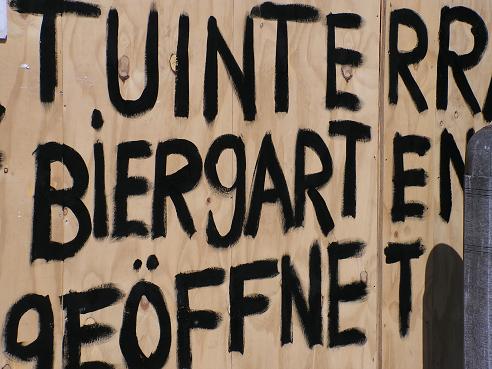 TUINTERRA
BIERGARTEN
GEÖFFNET